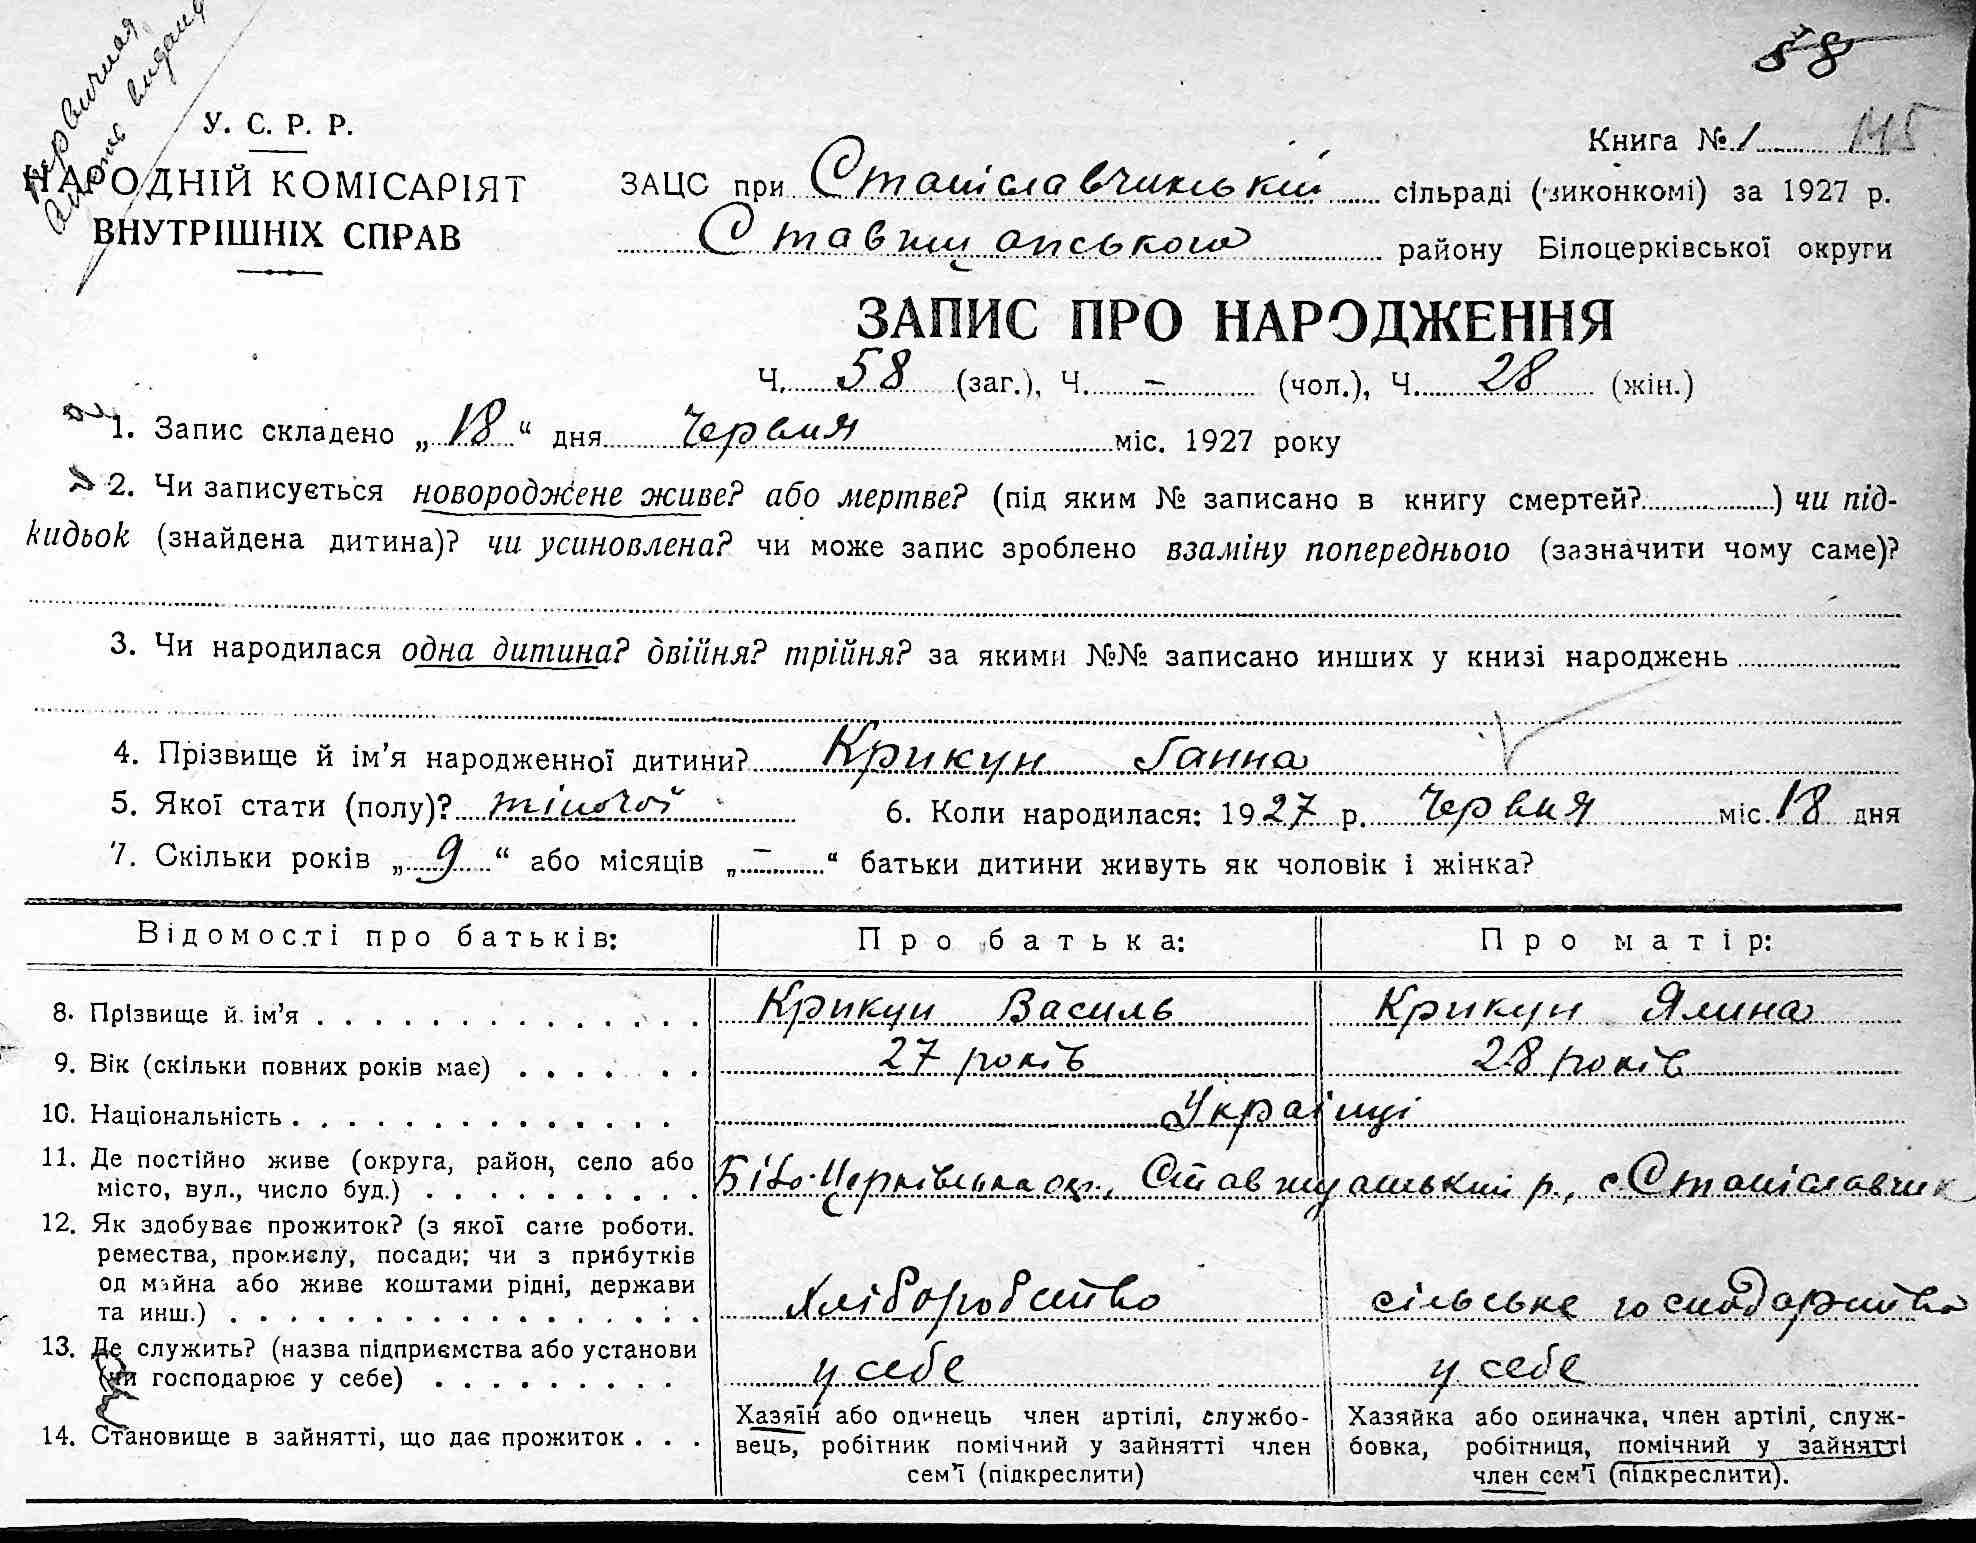 58
Первичная
выпись выдана
У. С. Р. Р.
НАРОДНІЙ КОМІСАРІЯТ
ВНУТРІШНІХ СПРАВ
Книга № 1 115
ЗАЦС при Станіславчинській сільраді (виконкомі) за 1927 р.
Ставищанського району Білоцерківської округи
ЗАПИС ПРО НАРОДЖЕННЯ
Ч. 58 (заг.), Ч. – (чол.), Ч. 28 (жін.)
1. Запис складено „ 18 “ дня Червня міс. 1927 року
2. Чи записується новороджене живе? або мертве? (під яким № записано в книгу смертей? ) чи під-
кидьок (знайдена дитина)? чи усиновлена? чи може запис зроблено взаміну попереднього (зазначити чому саме)?
3. Чи народилася одна дитина? двійня? трійня? за якими №№ записано инших у книзі народжень
4. Прізвище й ім’я народженної дитини? Крикун Ганна
5. Якої стати (полу)? жіночої 6. Коли народилася: 1927 р. Червня міс. 18 дня
7. Скільки років „ 9 “ або місяців „ – “ батьки дитини живуть як чоловік і жінка?
Відомості про батьків: Про батька: Про матір:
8. Прізвище й ім’я Крикун Василь Крикун Ялина
9. Вік (скільки повних років має) 27 років 28 років
10. Національність Українці
11. Де постійно живе (округа, район, село або
місто, вул., число буд.) Біло-Церківська окр., Ставищанський р., с Станіславчик
12. Як здобуває прожиток? (з якої саме роботи.
ремества, промислу, посади; чи з прибутків
од майна або живе коштами рідні, держави
та инш.) Хліборобство сільське господарство
13. Де служить? (назва підприємства або установи
(чи господарює у себе) у себе у себе
14. Становище в зайнятті, що дає прожиток
Хазяїн або одинець член артілі, службо-
вець, робітник помічний у зайнятті член
сем’ї (підкреслити)
Хазяйка або одиначка, член артілі, служ-
бовка, робітниця, помічний у зайнятті
член сем’ї (підкреслити).